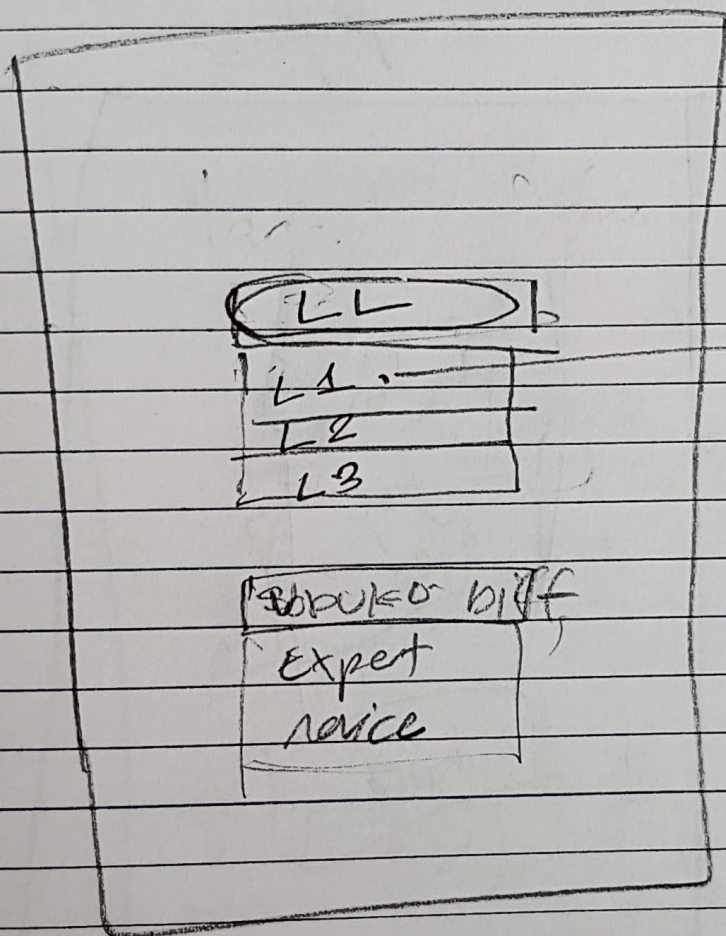 LL
L1
L2
L3
Diff
Expert
novice